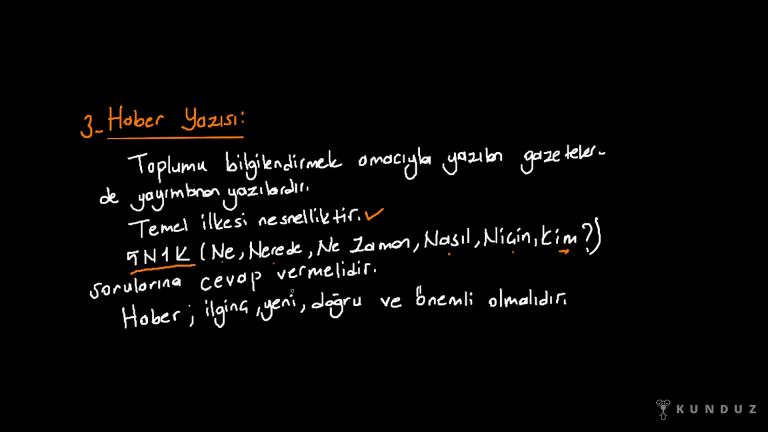 3- Haber Yazısı:
Toplumu bilgilendirmek amacıyla yazılan gazeteler-
de yayımlanan yazılardır.
Temel ilkesi nesnelliktir. ✓
5N1K (Ne, Nerede, Ne Zaman, Nasıl, Niçin, Kim?)
sorularına cevap vermelidir.
Haber; ilginç, yeni, doğru ve önemli olmalıdır.
KUNDUZ